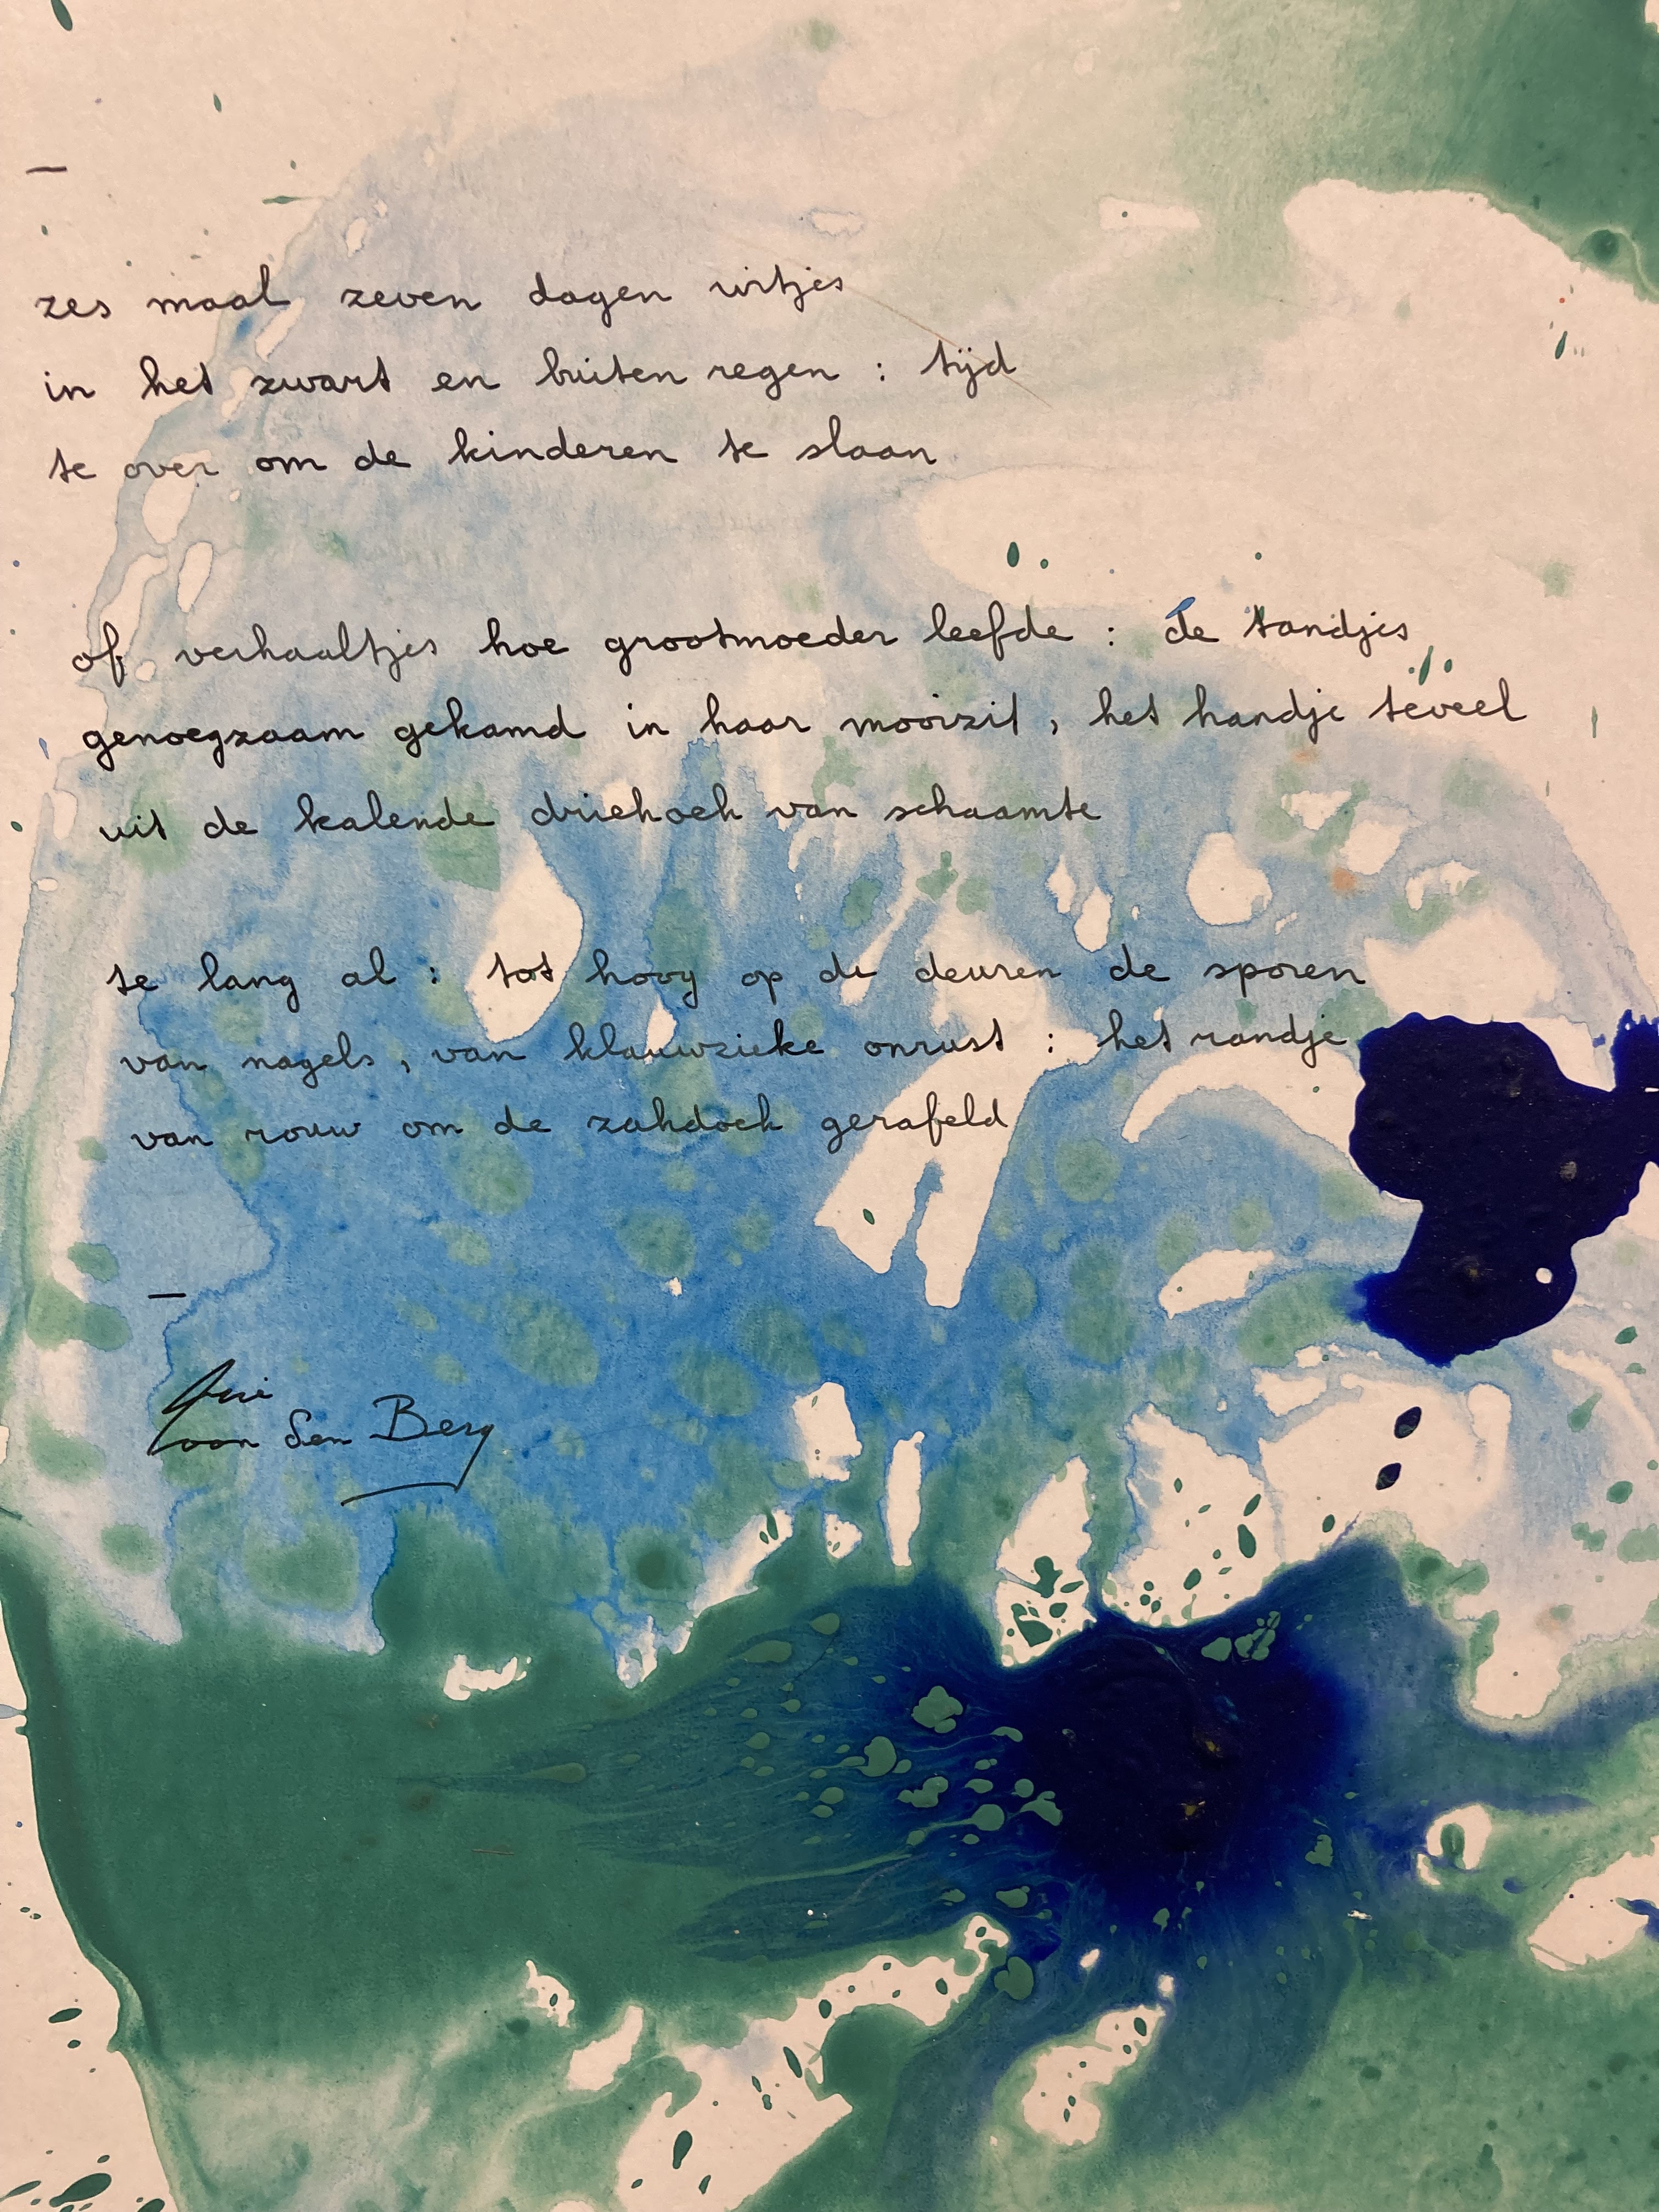 —
zes maal zeven dagen uitjes
in het zwart en buiten regen : tijd
te over om de kinderen te slaan
of verhaaltjes hoe grootmoeder leefde : de tandjes
genoegzaam gekamd in haar mooizit, het handje teveel
uit de kalende driehoek van schaamte
te lang al : tot hoog op de deuren de sporen
van nagels, van klauwzieke onrust : het randje
van rouw om de zakdoek gerafeld
—
van den Berg